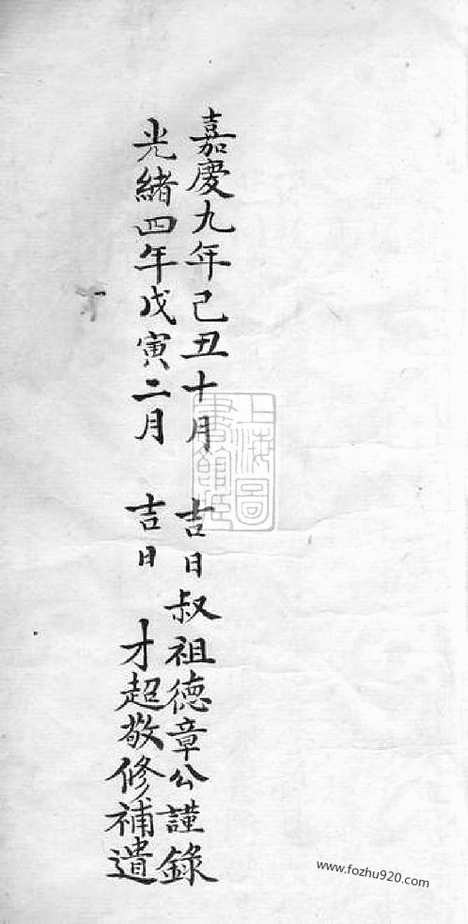 嘉慶九年己丑十月 吉日叔祖德章公謹錄
光緒四年戊寅二月 吉日 才超敬修補遺
上海圖書館藏
www.fozhu920.com